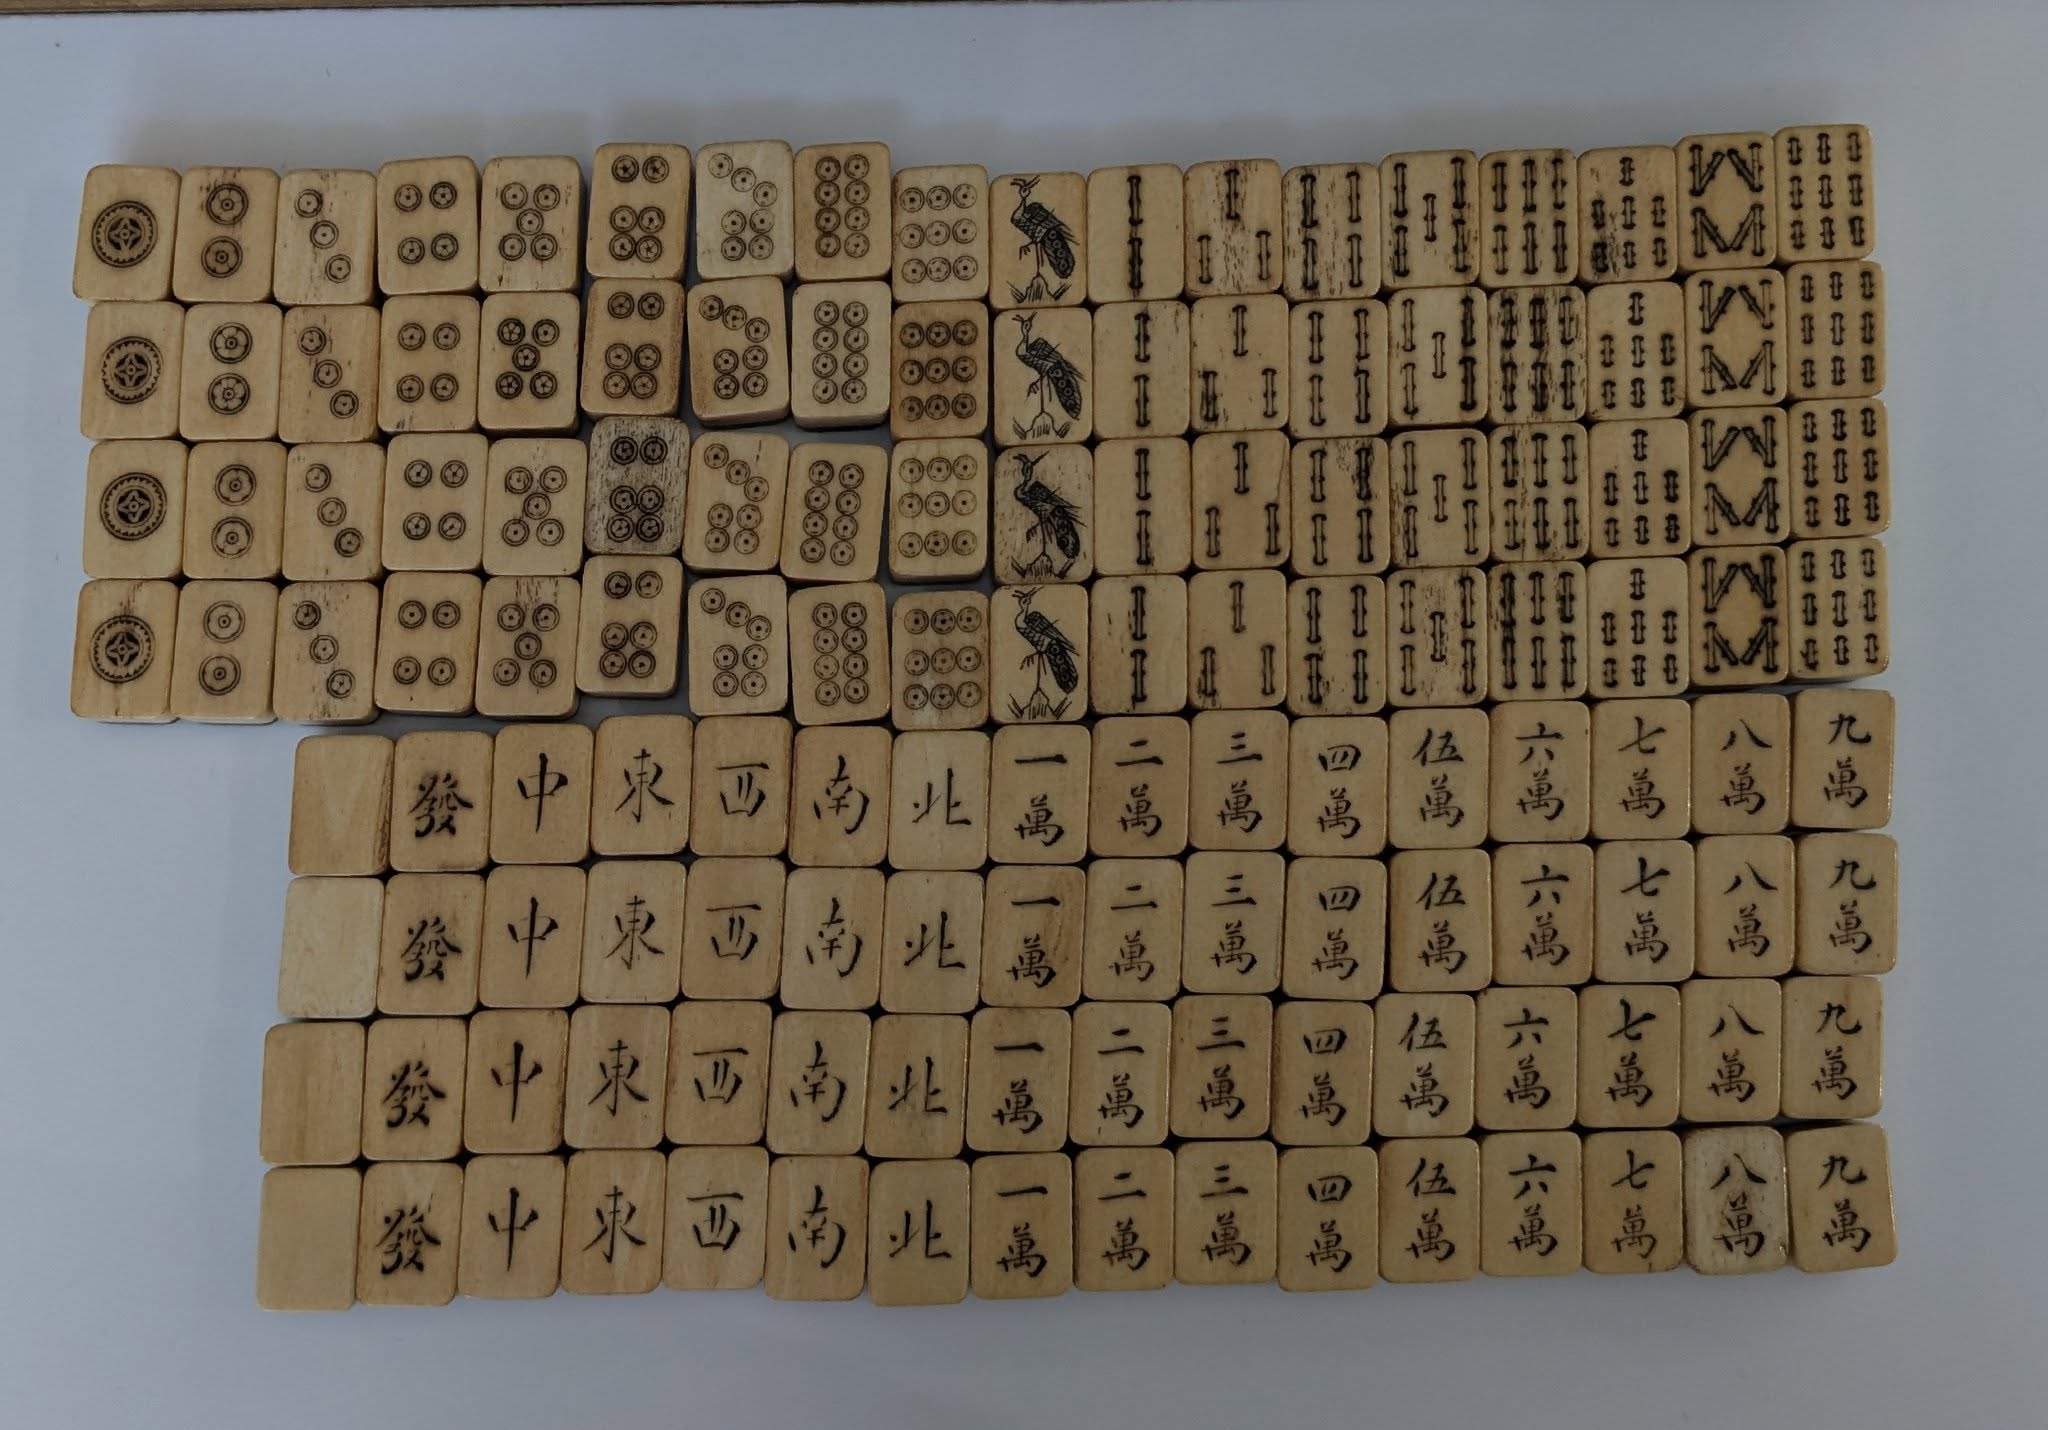 發 中 東 西 南 北 一萬 二萬 三萬 四萬 伍萬 六萬 七萬 八萬 九萬
發 中 東 西 南 北 一萬 二萬 三萬 四萬 伍萬 六萬 七萬 八萬 九萬
發 中 東 西 南 北 一萬 二萬 三萬 四萬 伍萬 六萬 七萬 八萬 九萬
發 中 東 西 南 北 一萬 二萬 三萬 四萬 伍萬 六萬 七萬 八萬 九萬